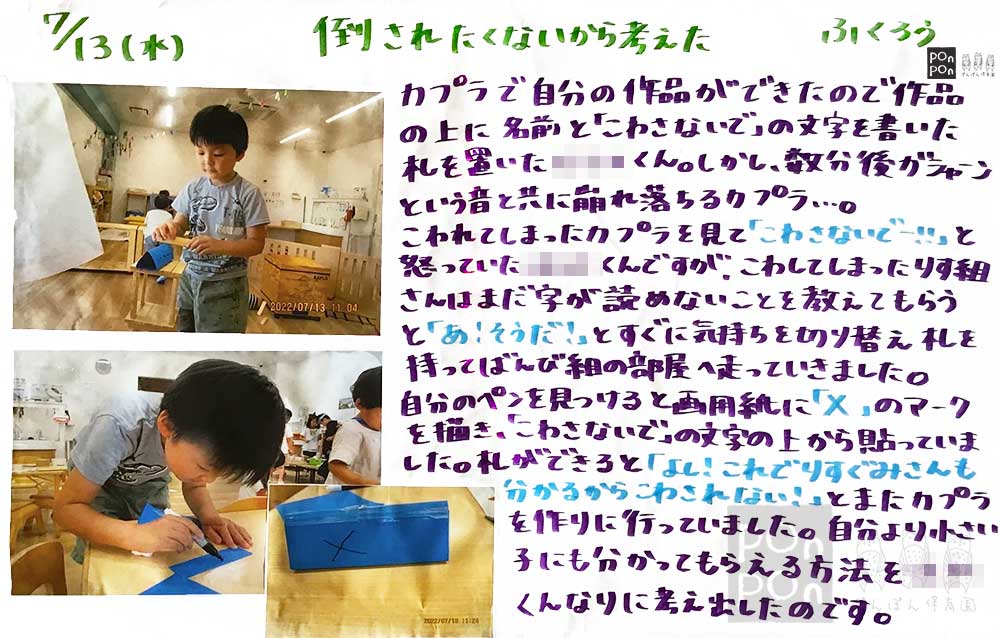 7/13(水) 倒されたくないから考えた ふくろう
pon
pon
ぽんぽん保育園
カプラで自分の作品ができたので作品
の上に名前と「こわさないで」の文字を書いた
札を置いた くん。しかし、数分後ガシャーン
という音と共に崩れ落ちるカプラ…。
こわれてしまったカプラを見て「こわさないでー!!」と
怒っていた くんですが、こわしてしまったりす組
さんはまだ字が読めないことを教えてもらう
と「あ!そうだ!」とすぐに気持ちを切り替え札を
持ってばんび組の部屋へ走っていきました。
自分のペンを見つけると画用紙に「X」のマーク
を描き、「こわさないで」の文字の上から貼っていま
した。札ができると「よし!これでりすぐみさんも
分かるからこわされない!」とまたカプラ
を作りに行っていました。自分より小さい
子にも分かってもらえる方法を
くんなりに考え出したのです。
2022/07/13 11:04
X
2022/07/13 11:24
pon
pon
ぽんぽん保育園